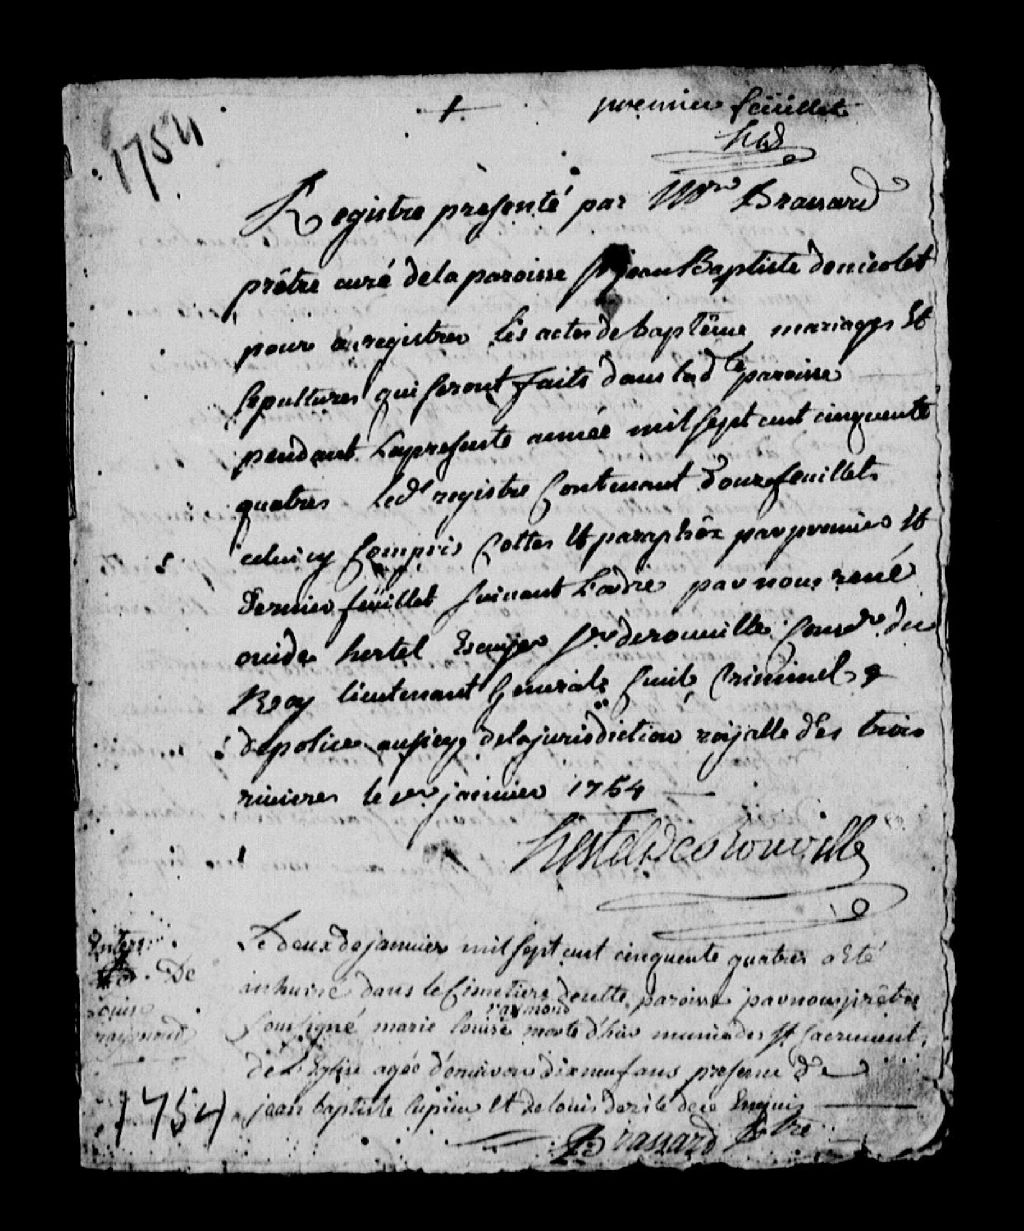 1754
+ premier feüillet
HdR
Registre presenté par Mre Brassard
prêtre curé de la paroisse St jean Baptiste de nicolet
pour Enregistrer Les actes de baptême mariages Et
sepultures qui seront faits dans lad.te paroisse
pendant La presente année mil sept cent cinquente
quatres Led.t registre Contenant Douze feuillets
celuicy Compris Cottes Et paraphés par premier Et
Dernier feüillet suivant Lordre par nous rené
ouide hertel Escuyer Sr derouuille Conser du
Roy lieutenant General Ciuil Criminel &
de police au siege de la jurisdiction royalle des trois
riuieres le 1er januier 1754
Hertel De Rouville
Enterr.
De
Louise
raymond
Le deux de januier mil sept cent cinquente quatres a Eté
inhumé dans le Cimetiere de cette paroisse par nous prêtre
raymond
soussigné marie louise morte d'hier munie des St sacrement
de L'Eglise agée d'environ dix neuf ans presence de
jean baptiste lupien Et de louis
1754
Brassard Ptre